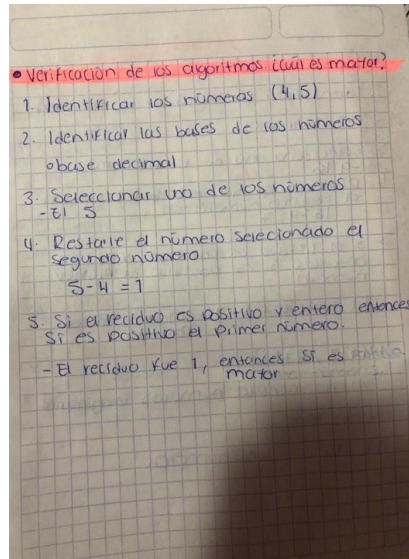 • Verificación de los algoritmos ¿cuál es mator?
1. Identificar los números (4,5)
2. Identificar las bases de los números
◦ base decimal
3. Seleccionar uno de los números
- El 5
4. Restarle el número selecionado el
segundo número
5-4 = 1
5. Si el reciduo es positivo y entero entonces
si es positivo el primer número.
- El reciduo fue 1, entonces si es
mator